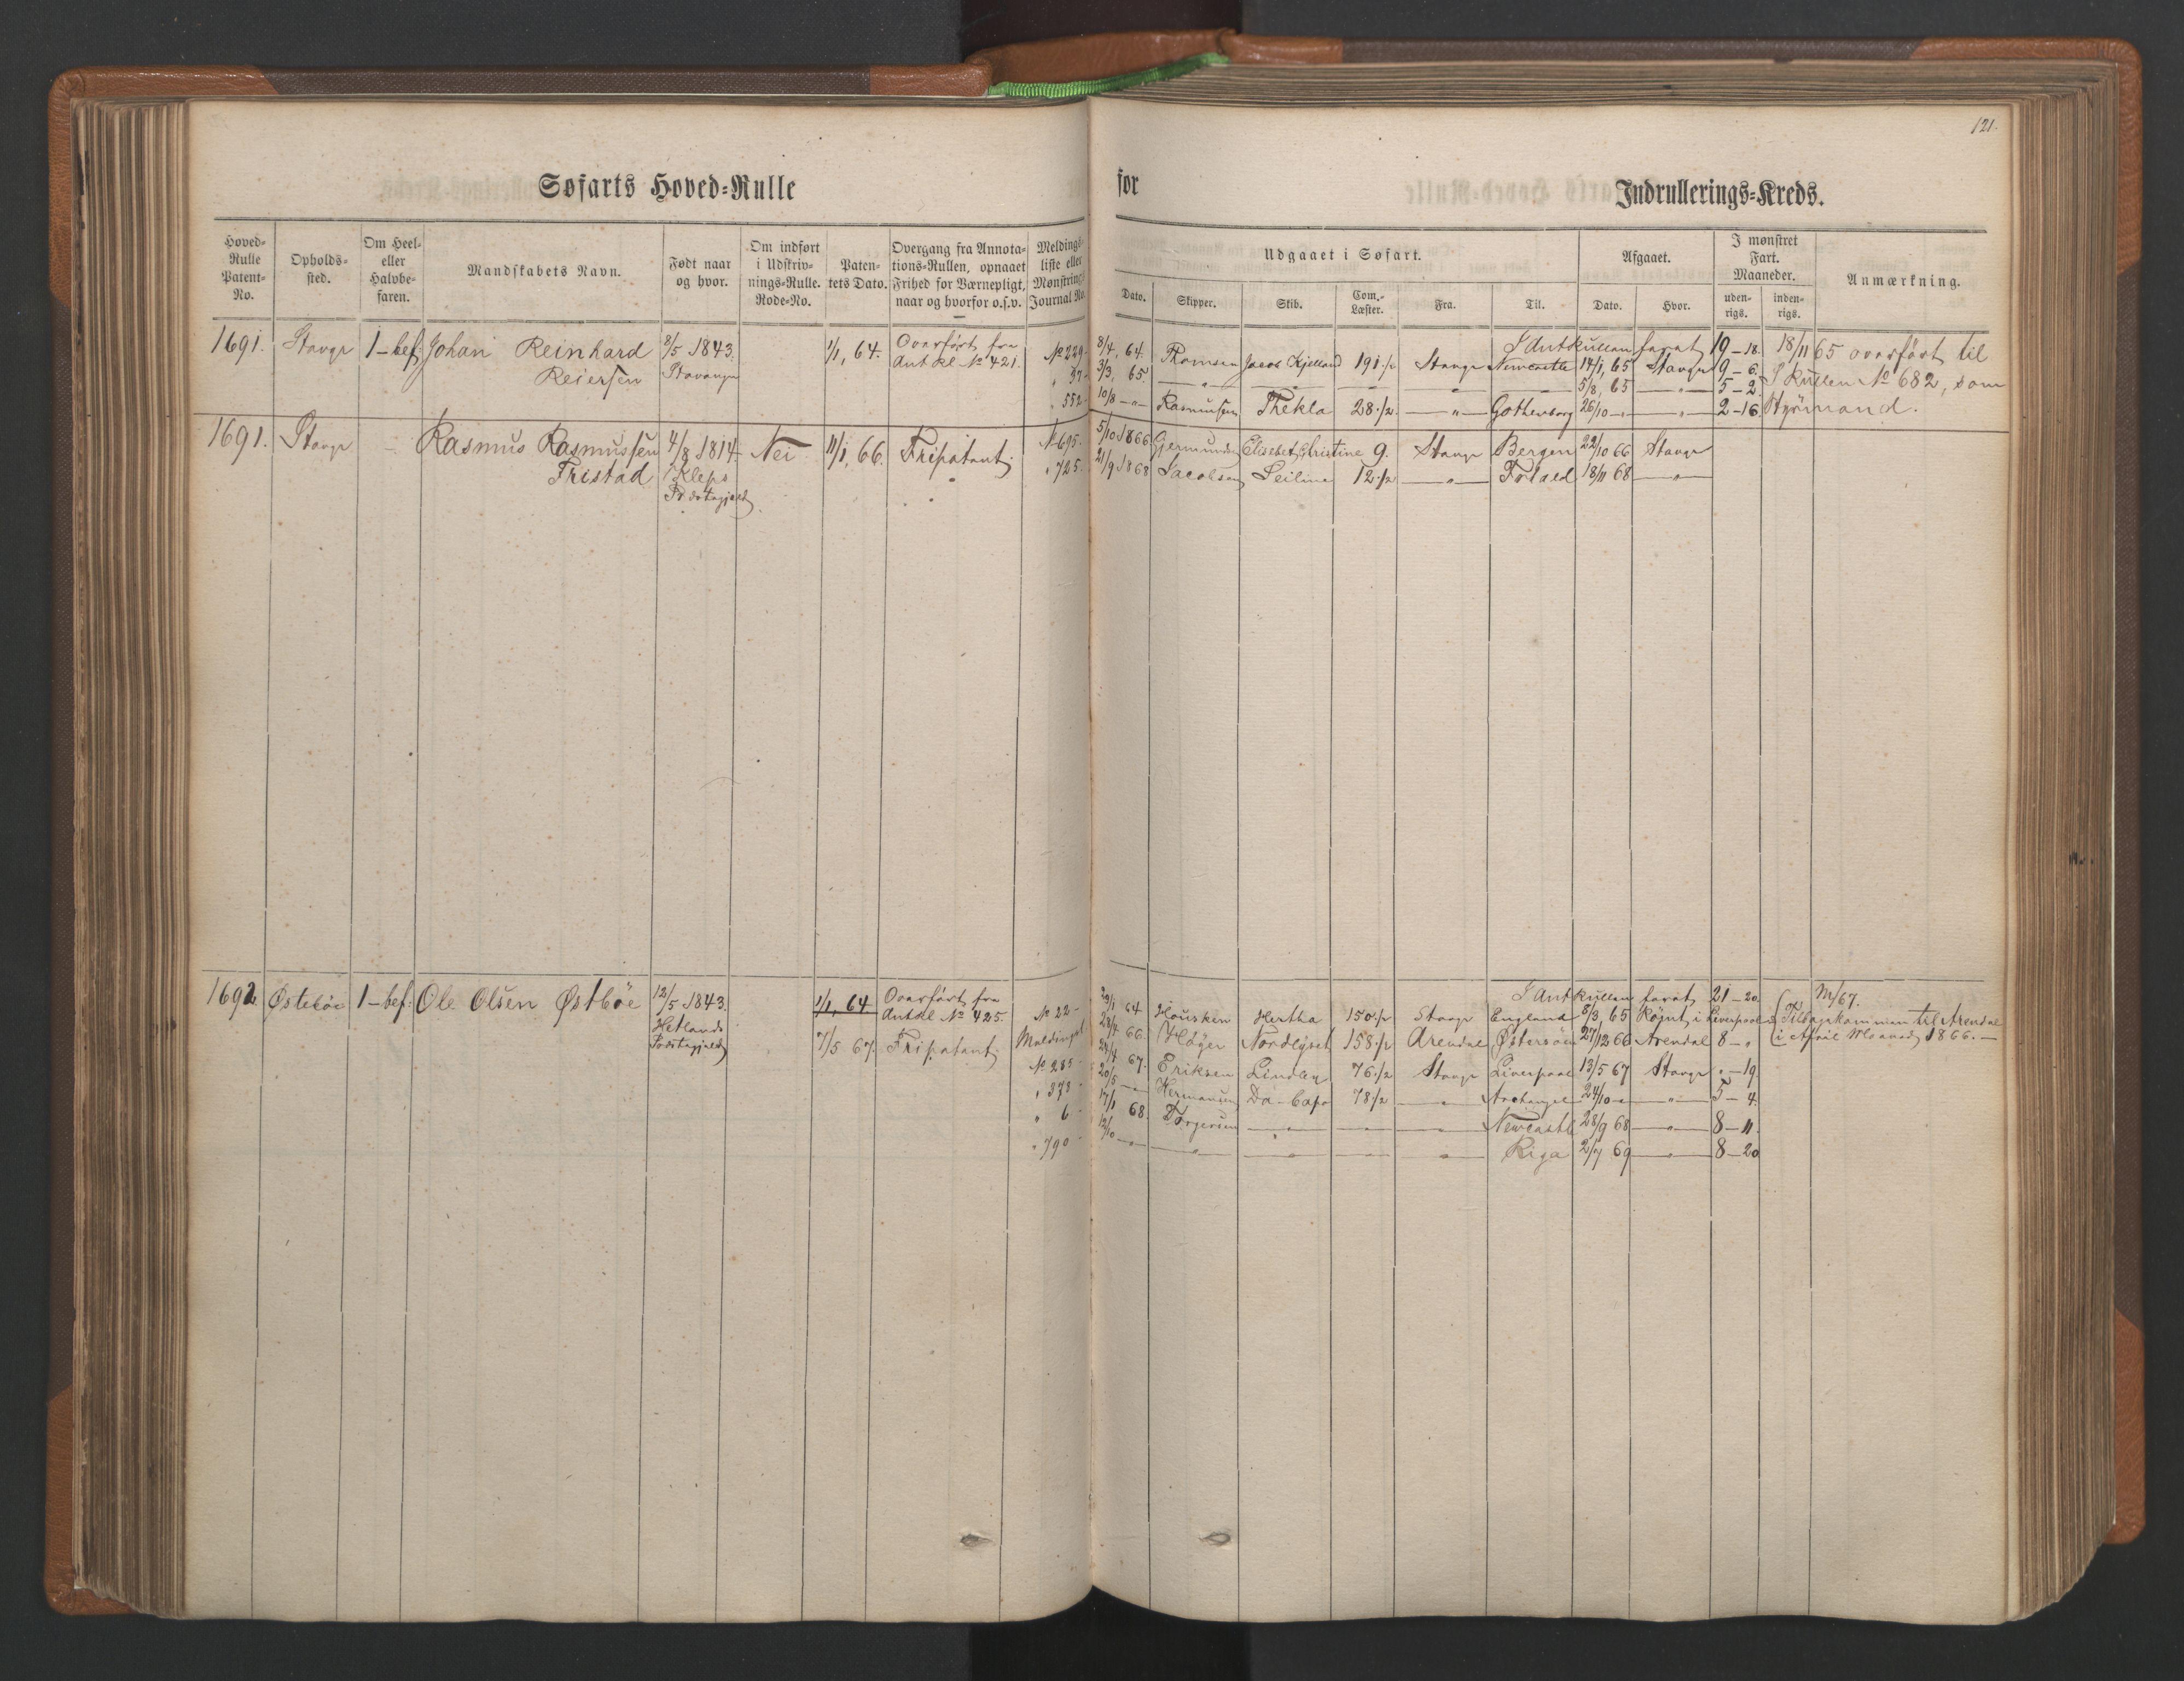 121.
Søfarts Hoved-Rulle
for
Indrullerings-Kreds.
Hoved-Rulle Patent-No.
Opholds-sted.
Om Heel- eller Halvbe-faren.
Mandskabets Navn.
Født naar og hvor.
Om indført i Udskriv-nings-Rulle. Rode-No.
Paten-tets Dato.
Overgang fra Annota-tions-Rullen, opnaaet Frihed for Værnepligt, naar og hvorfor o.s.v.
Meldings-liste eller Mønstrings-Journal No.
Udgaaet i Søfart.
Dato.
Skipper.
Skib.
Com.-Læster.
Fra.
Til.
Afgaaet.
Dato.
Hvor.
I mønstret Fart. Maaneder.
uden-rigs.
inden-rigs.
Anmærkning.
1691. Stavgr 1-bef. Johan Reinhard 8/5 1843. 1/1, 64. Overført fra
Reiersen Stavanger Ant Rl No 421.
I Antrullen farat 19-18. 18/11 65 overført til
No 229 8/4, 64. Thomsen Jacob Kjelland 191 1/2 Stavgr Newcastle 14/1, 65 Stavgr 9-6. I Rullen No 682, som
" 37- 3/3, 65. —"— — — " 5/8, 65 —"— 5-2 Styrmand.
" 552- 10/8 -"- Rasmussen Thekla 28 1/2 —"— Gothenborg 26/10 -"- " 2-16
1691. Stavgr - Rasmus Rasmussen 4/8 1814. Nei 11/1, 66. Fripatent.
Fristad Kleps
Præstegjeld
No 695. 5/10 1866 Gjermundsen Elisebet Christine 9. Stavgr Bergen 22/10 66 Stavgr
" 725. 21/9 1868 Jacobsen Seiline 12 1/2 —"— 18/11 68 —"—
1692 Østebøe 1-bef. Ole Olsen Østbøe 12/5 1843. 1/1, 64 Overført fra
Hetlands Antrl No 425.
Præstegjeld 7/5 67. Fripatent
I Antrullen farat 21-20. M/67.
No 22- 29/1 64 Housken Hertha 150 1/2 Stavgr England 8/3, 65 Rømt i Liverpool Tilbagekommen til Arendal
Meldingsl 66. Høyer Nordlyset 158 1/2 Arendal Østersøen 27/12 66 Arendal 8-" i April Maaned 1866.—
No 285- 67. Eriksen Linden 76 1/2 Stavgr Liverpool 13/5 67 Stavgr "-19
" 373- 20/5 -"- Hermansen Da-Capo 78 1/2 —"— Archangel 24/10 -"- —"— 5-4.
" 6- 17/1 68 Torgersen —"— — —"— Newcastle 28/9 68 —"— 8-11.
" 790- 12/10 -"- —"— —"— — " Riga 2/7 69 —"— 8-20